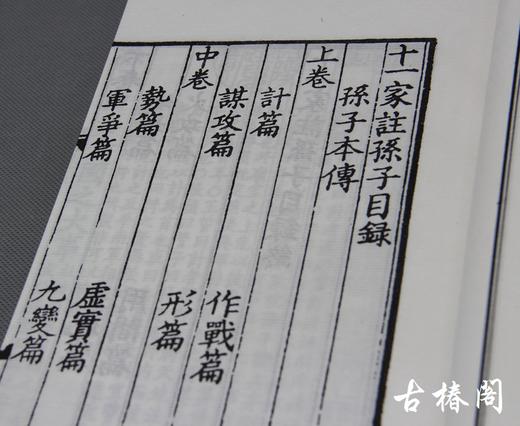 十一家註孫子目錄
孫子本傳
上卷
計篇 作戰篇
謀攻篇
中卷 形篇
勢篇 虛實篇
軍爭篇 九變篇
古椿阁